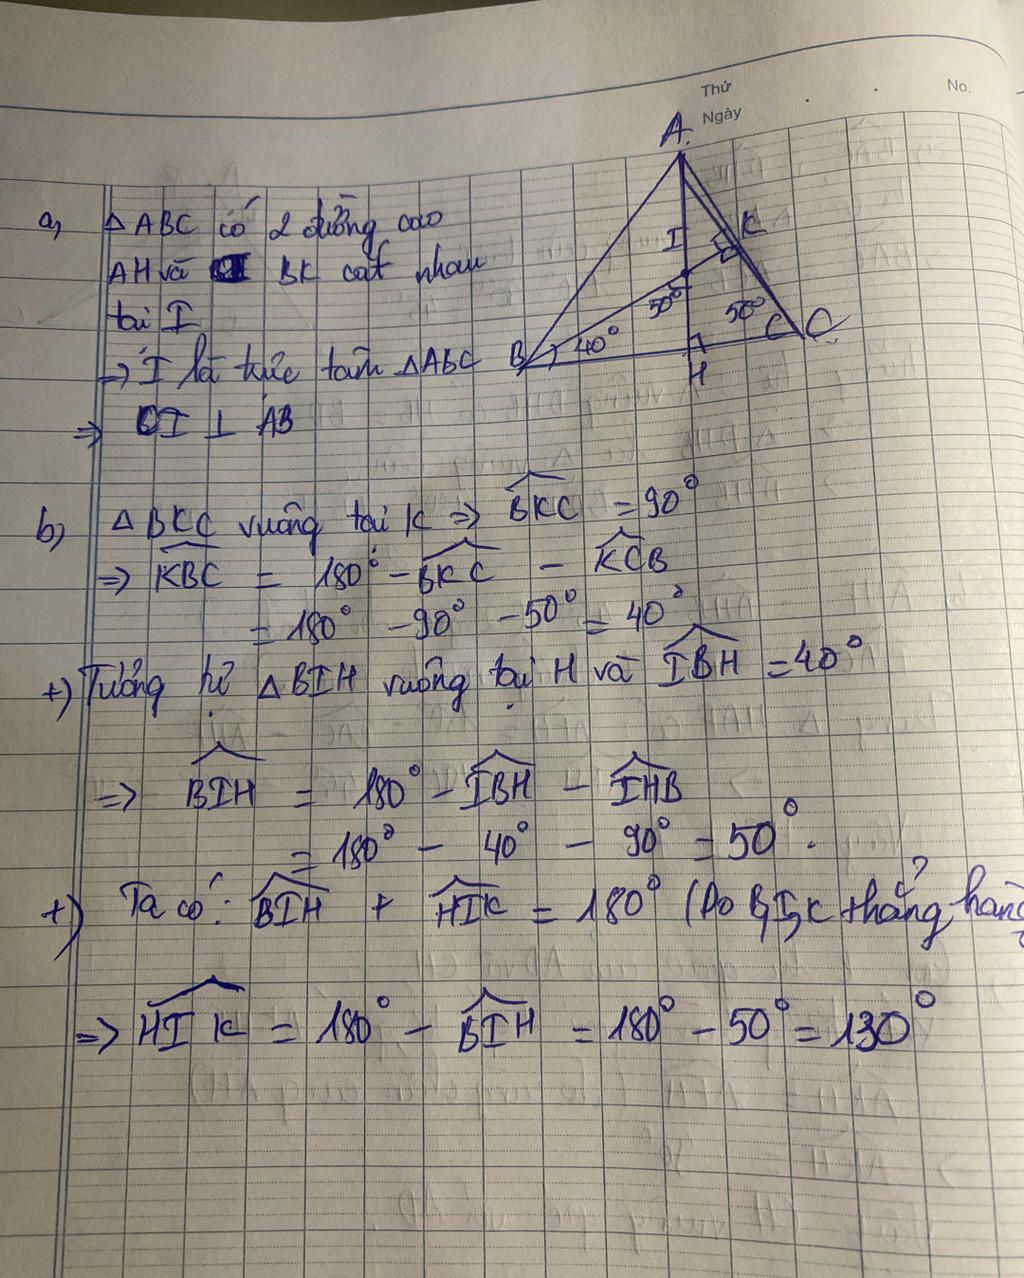 Thứ
Ngày
No.
A
I
K
50°
50°
C C
B 40°
H
a, △ABC có 2 đường cao
AH và BK cắt nhau
tại I
=> I là trực tâm △ABC
=> CI ⊥ AB
b) △BKC vuông tại K => \widehat{BKC} = 90°
=> \widehat{KBC} = 180° - \widehat{BKC} - \widehat{KCB}
= 180° - 90° - 50° = 40°
+) Tương tự △BIH vuông tại H và \widehat{IBH} = 40°
=> \widehat{BIH} = 180° - \widehat{IBH} - \widehat{IHB}
= 180° - 40° - 90° = 50°.
+) Ta có: \widehat{BIH} + \widehat{HIK} = 180° (Do B,I,K thẳng hàng
=> \widehat{HIK} = 180° - \widehat{BIH} = 180° - 50° = 130°